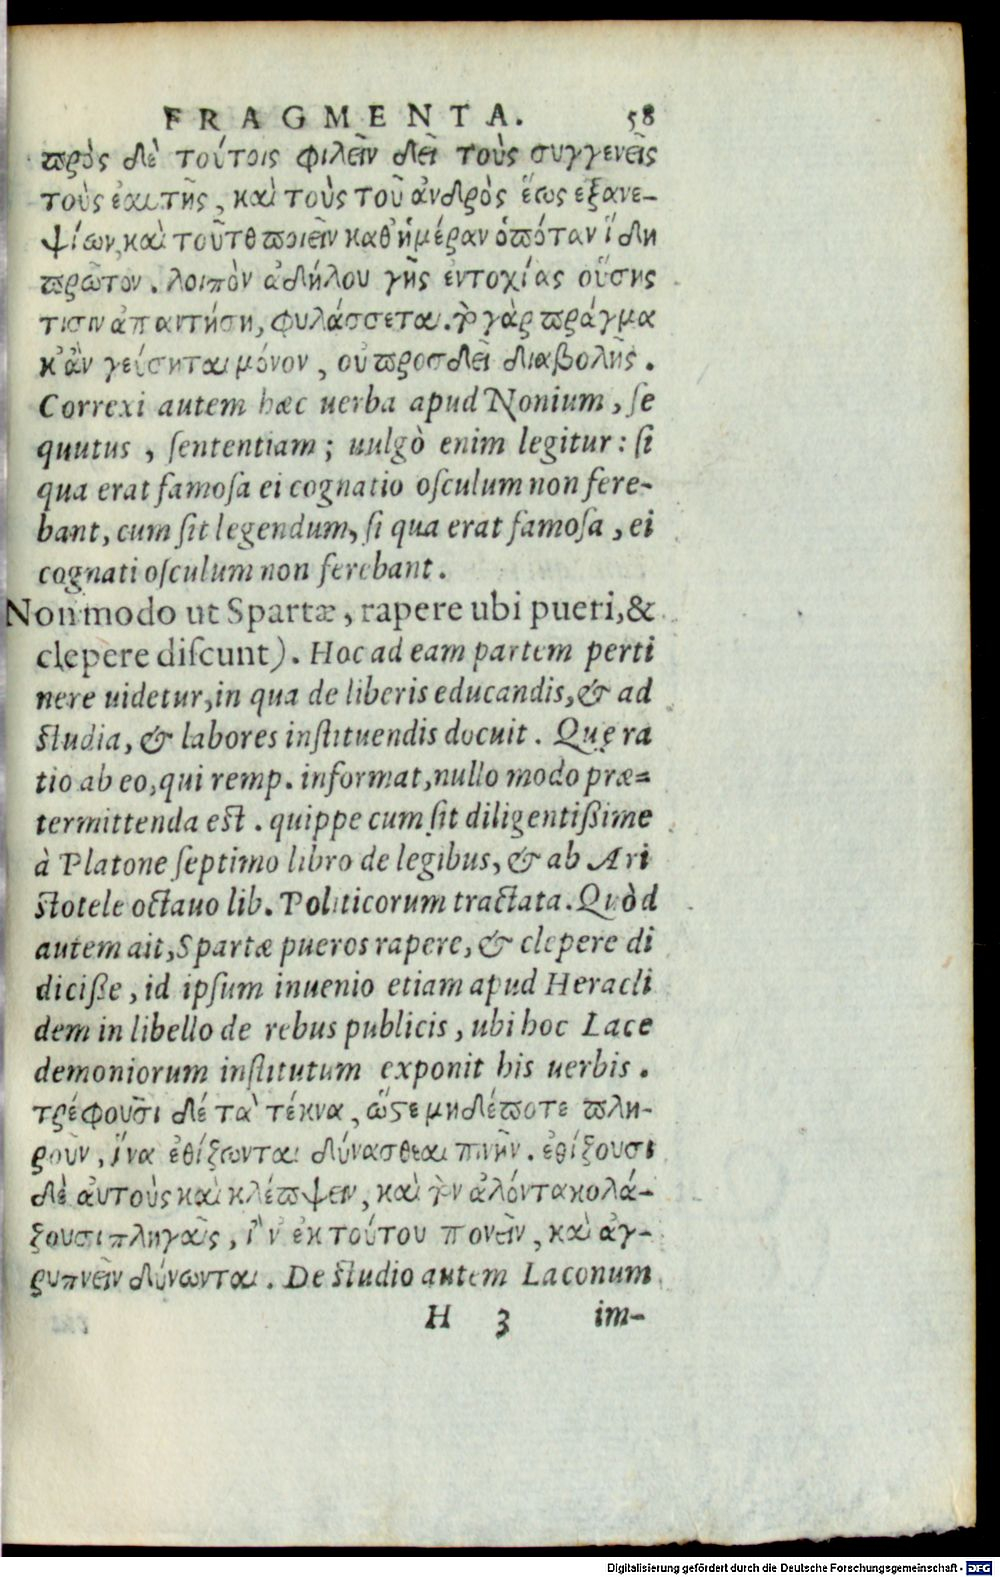 FRAGMENTA. 58
πρὸς δὲ τούτοις φιλεῖν δεῖ τοὺς συγγενεῖς
τοὺς ἑαυτῆς, καὶ τοὺς τοῦ ἀνδρὸς ἕως εξανε-
ψίων, καὶ τοῦτο ποιεῖν καθ' ἡμέραν ὁπόταν ἴδη
πρῶτον. λοιπὸν ἀδήλου γῆς ἐντοχίας οὔσης
τισιν ἀπαντήση, φυλάσσεται. τὸ γὰρ πρᾶγμα
κ' ἂν γείσηται μόνον, οὐ προσδεῖ διαβολῆς.
Correxi autem hæc uerba apud Nonium, ſe
quutus, ſententiam; uulgò enim legitur: ſi
qua erat famoſa ei cognatio oſculum non fere-
bant, cum ſit legendum, ſi qua erat famoſa, ei
cognati oſculum non ferebant.
Non modo ut Spartæ, rapere ubi pueri, &
clepere diſcunt). Hoc ad eam partem perti
nere uidetur, in qua de liberis educandis, & ad
ſtudia, & labores inſtituendis docuit. Quę ra
tio ab eo, qui remp. informat, nullo modo præ=
termittenda eſt. quippe cum ſit diligentißime
à Platone ſeptimo libro de legibus, & ab Ari
ſtotele octauo lib. Politicorum tractata. Quòd
autem ait, Spartæ pueros rapere, & clepere di
diciße, id ipſum inuenio etiam apud Heracli
dem in libello de rebus publicis, ubi hoc Lace
demoniorum inſtitutum exponit his uerbis.
τρέφουσι δέ τὰ τέκνα, ὥςε μηδέποτε πλη-
ροῦν, ἵνα ἐθίζωνται δύνασθαι πινῆν. ἐθίζουσι
δὲ ἀυτοὺς καὶ κλέπψειν, καὶ τὸν ἁλόντα κολά-
ζουσι πληγαῖς, ἵν' ἐκ τούτου πονεῖν, καὶ ἀγ-
ρυπνεῖν δύνωνται. De ſtudio autem Laconum
H 3 im-
Digitalisierung gefördert durch die Deutsche Forschungsgemeinschaft - DFG